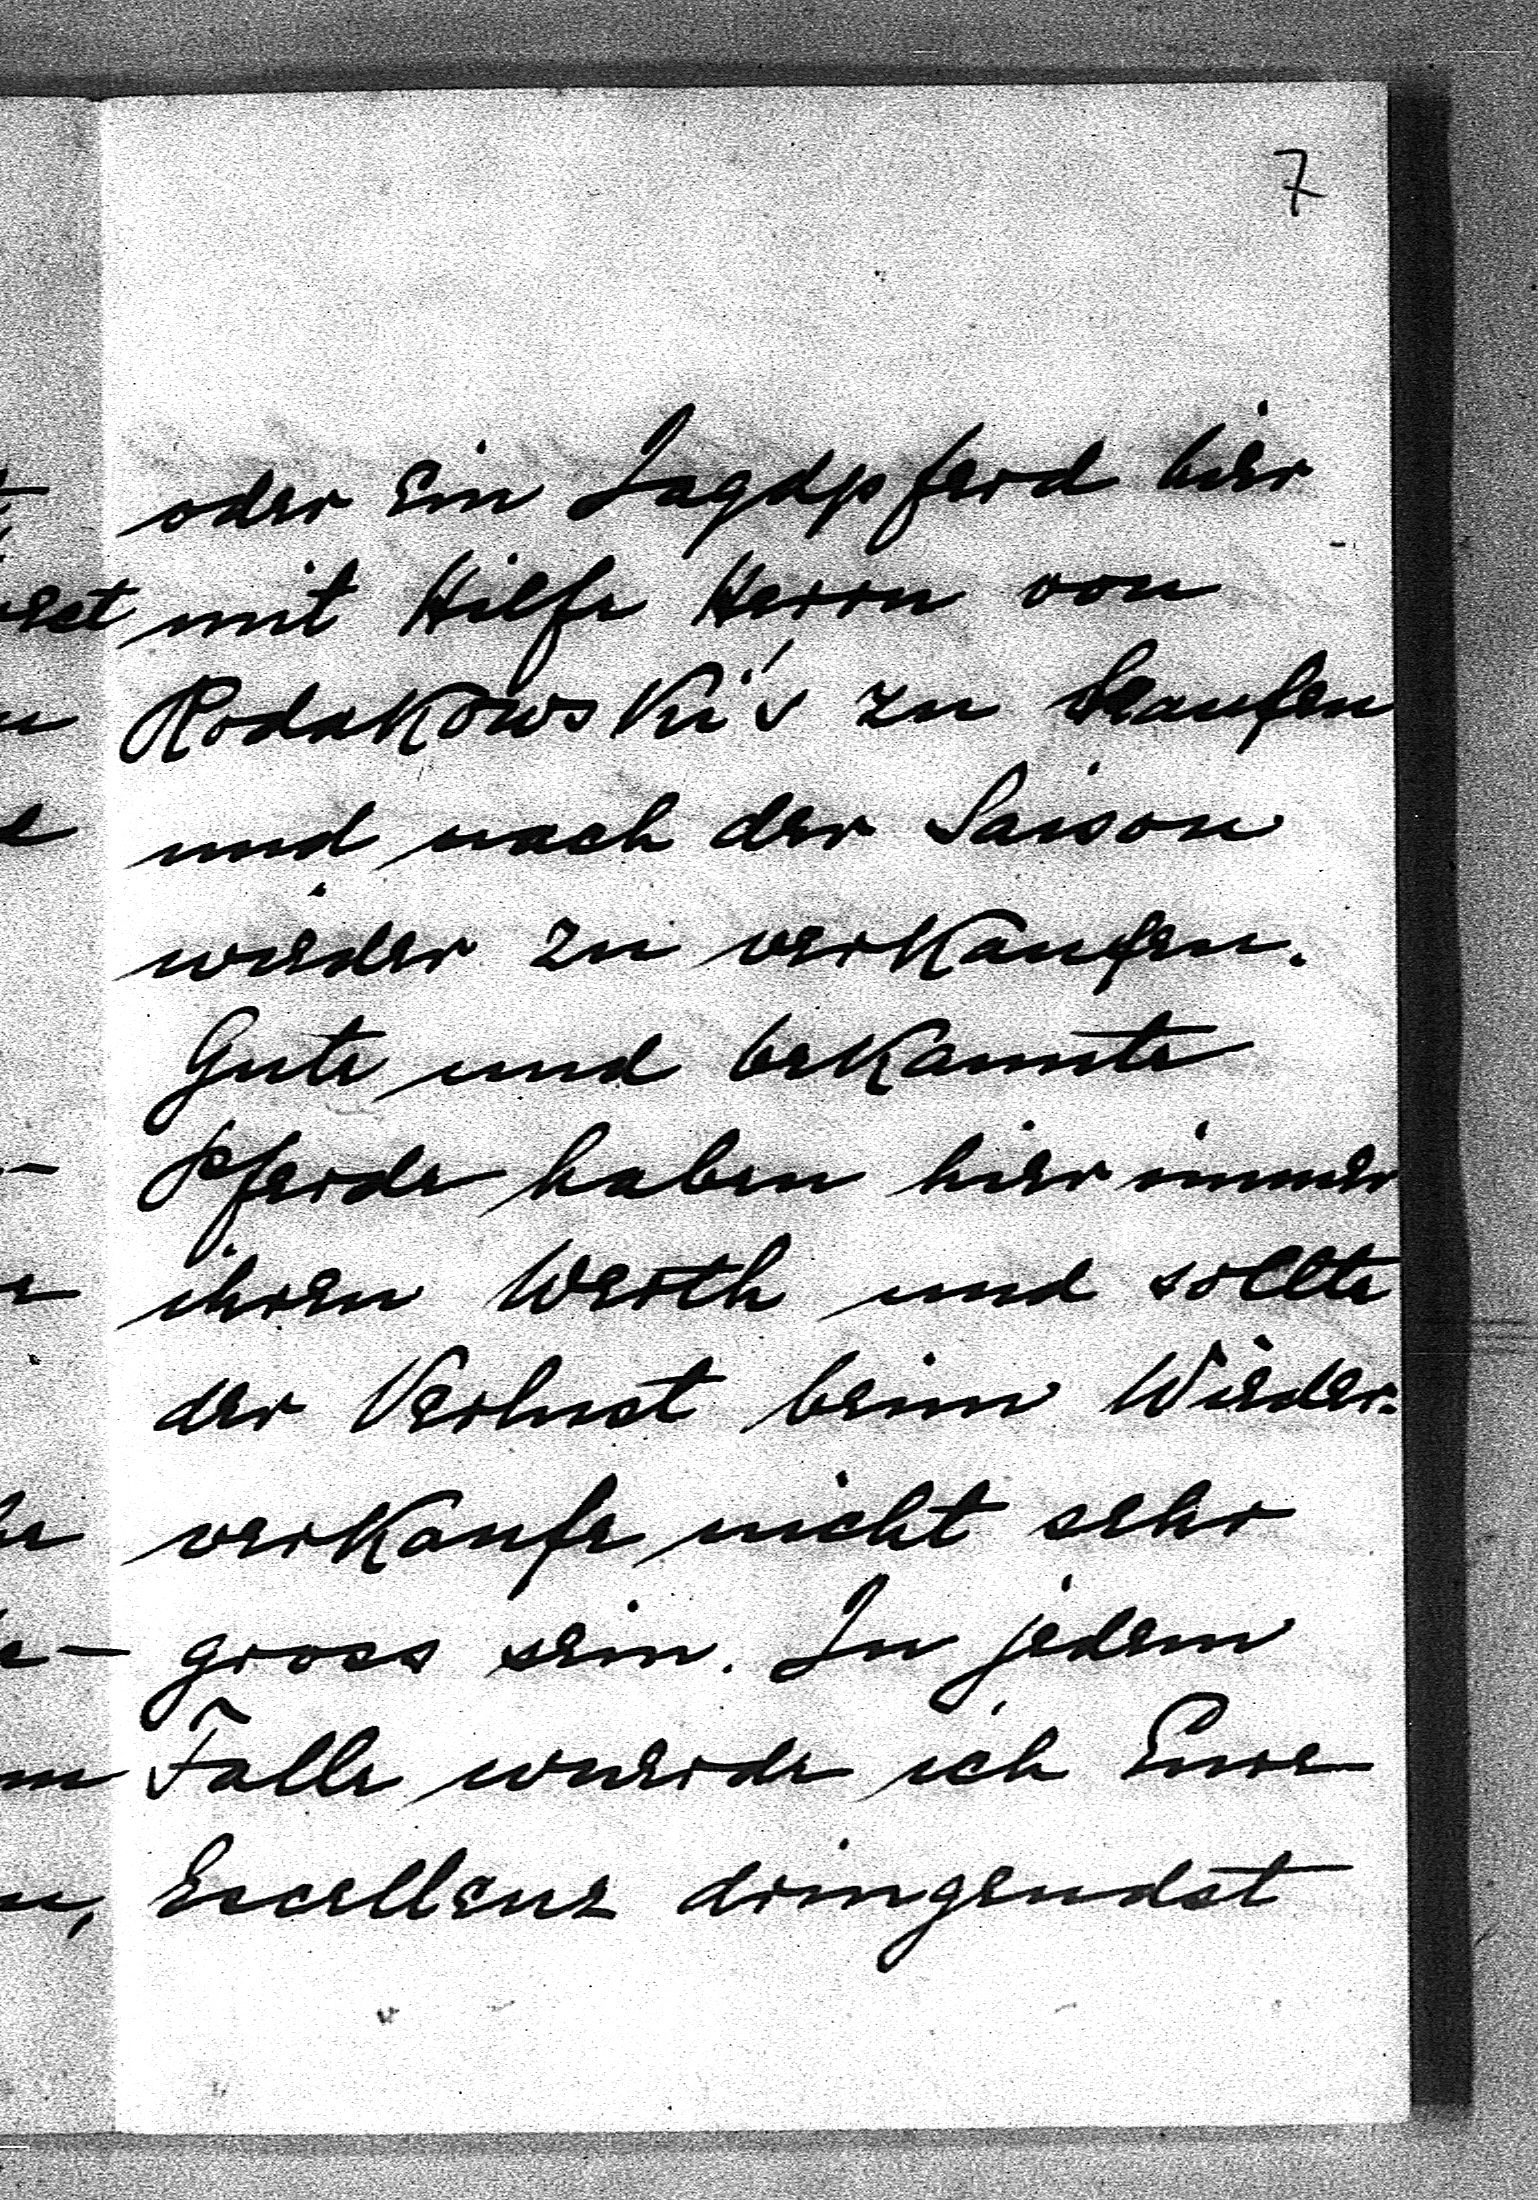 7
oder ein Jagdpferd hier
mit Hilfe Herrn von
Rodakowski's zu kaufen
und nach der Saison
wieder zu verkaufen.
Gute und bekannte
Pferde haben hier immer
ihren Werth und sollte
der Verlust beim Wieder-
verkaufe nicht sehr
gross sein. In jedem
Falle wuerde ich Eure
Excellenz dringendst